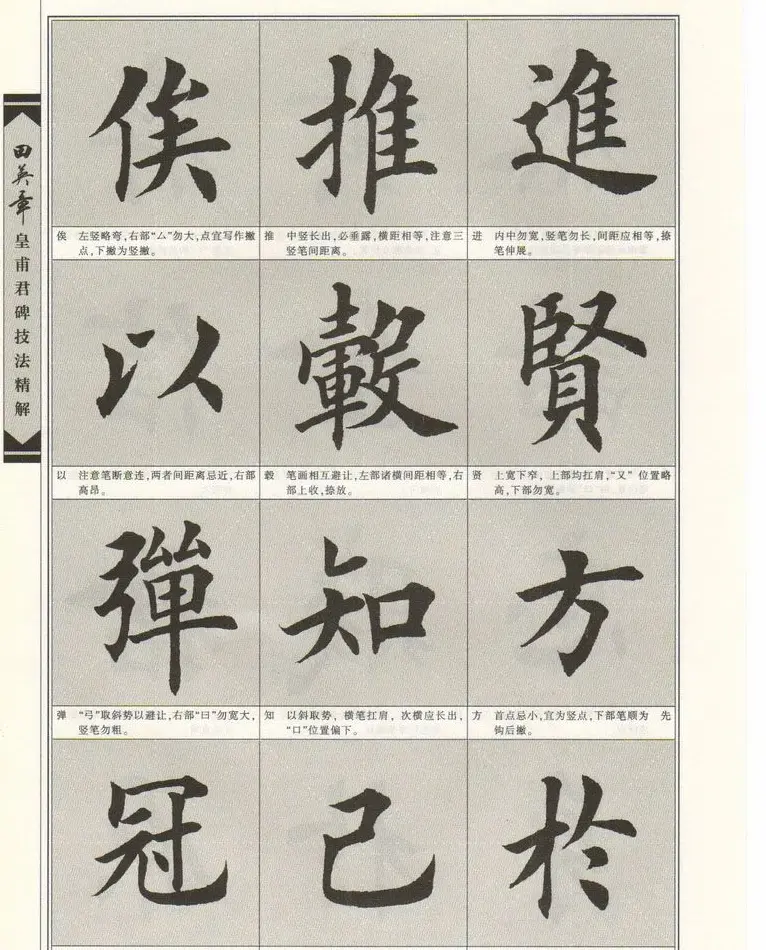 田英章皇甫君碑技法精解
俟
推
進
俟 左竖略弯,右部“厶”勿大,点宜写作撇
点,下撇为竖撇。
推 中竖长出,必垂露,横距相等,注意三
竖笔间距离。
进 内中勿宽,竖笔勿长,间距应相等,捺
笔伸展。
以
轂
賢
以 注意笔断意连,两者间距离忌近,右部
高昂。
毂 笔画相互避让,左部诸横间距相等,右
部上收,捺放。
贤 上宽下窄,上部均扛肩,“又”位置略
高,下部勿宽。
彈
知
方
弹 “弓”取斜势以避让,右部“曰”勿宽大,
竖笔勿粗。
知 以斜取势,横笔扛肩,次横应长出,
“口”位置偏下。
方 首点忌小,宜为竖点,下部笔顺为 先
钩后撇。
冠
己
於